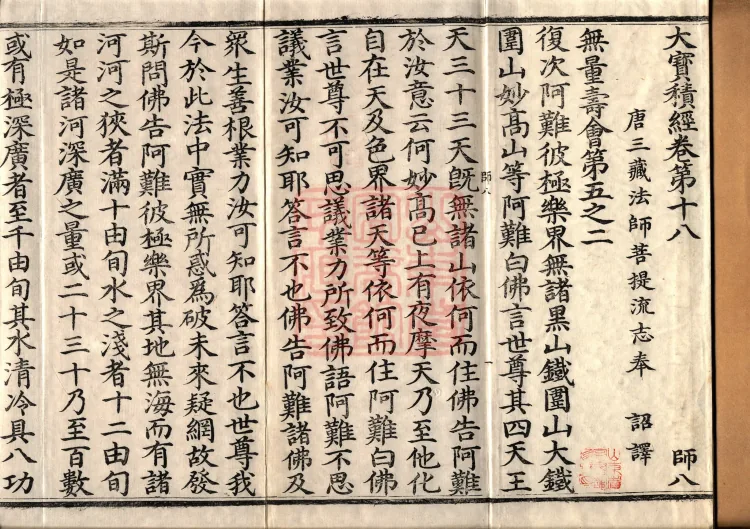 大寶積經卷第十八 師八
唐三藏法師菩提流志奉 詔譯
無量壽會第五之二
復次阿難彼極樂界無諸黑山鐵圍山大鐵
圍山妙高山等阿難白佛言世尊其四天王
天三十三天旣無諸山依何而住佛告阿難
師八
於汝意云何妙高已上有夜摩天乃至他化
自在天及色界諸天等依何而住阿難白佛
言世尊不可思議業力所致佛語阿難不思
議業汝可知耶答言不也佛告阿難諸佛及
眾生善根業力汝可知耶答言不也世尊我
今於此法中實無所惑爲破未來疑網故發
斯問佛告阿難彼極樂界其地無海而有諸
河河之狹者滿十由旬水之淺者十二由旬
如是諸河深廣之量或二十三十乃至百數
或有極深廣者至千由旬其水清冷具八功